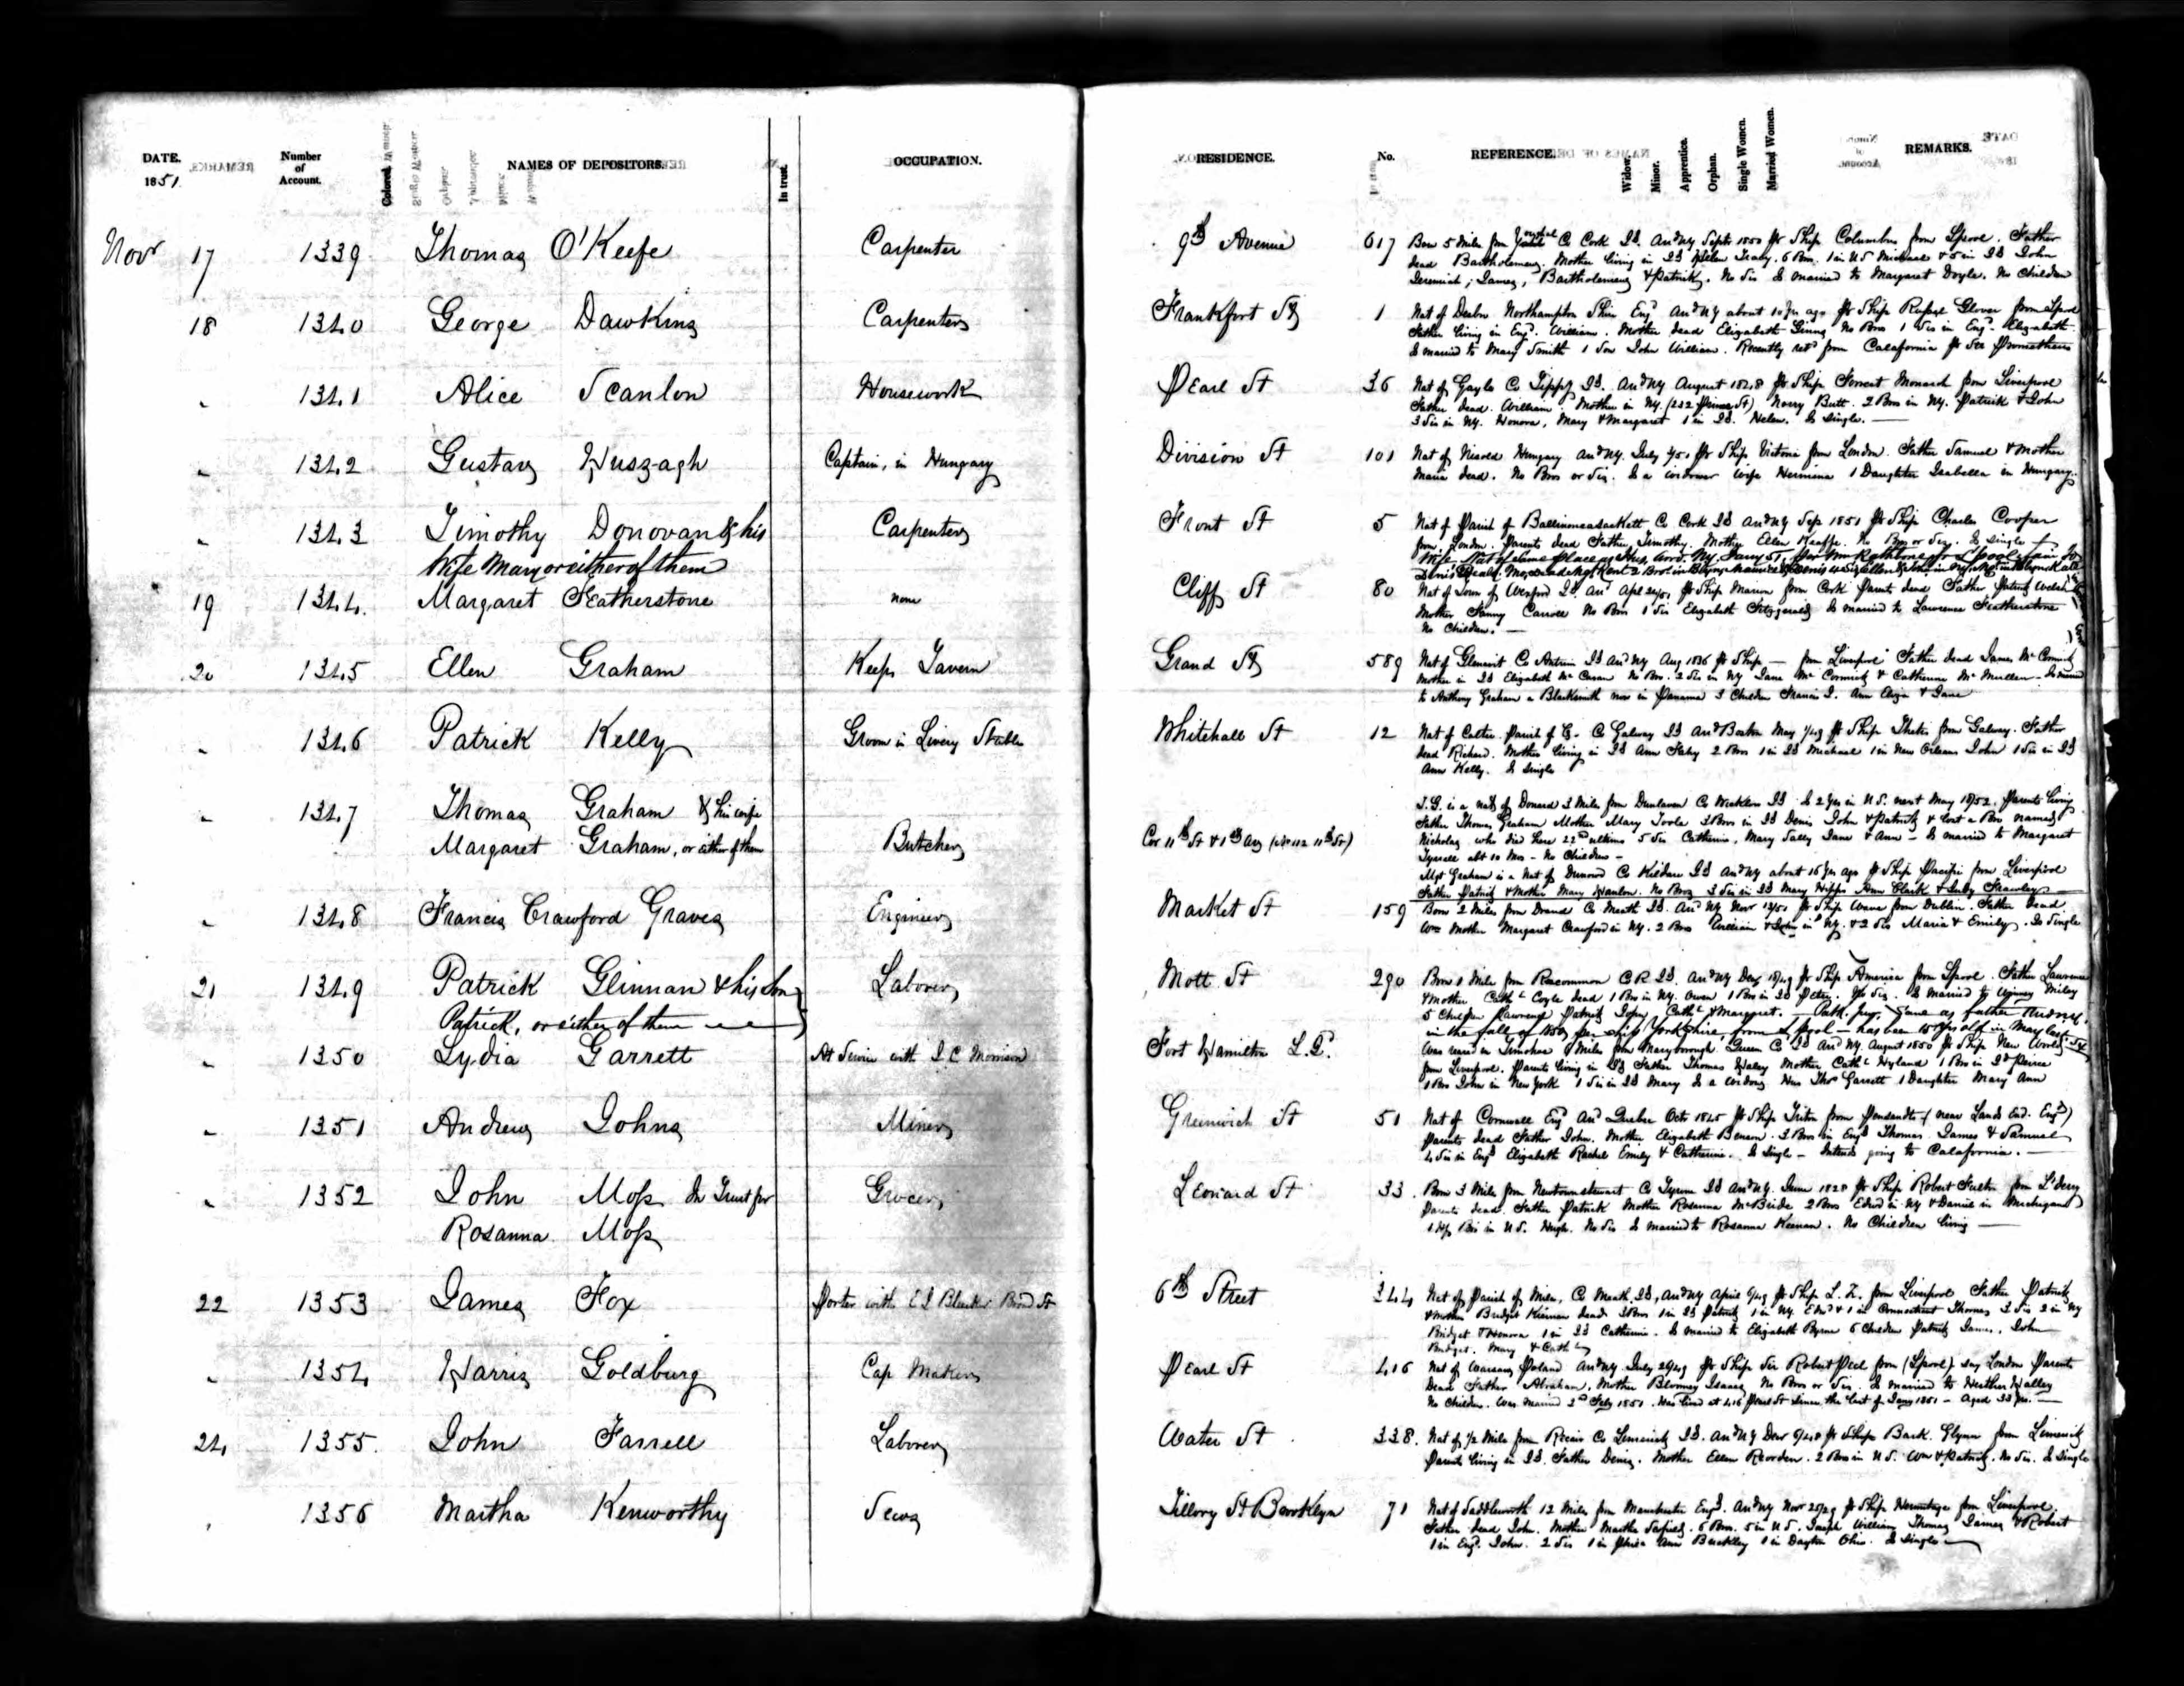 DATE. Number of Account. NAMES OF DEPOSITORS. In trust. OCCUPATION. RESIDENCE. No. REFERENCE. Widow. Minor. Apprentice. Orphan. Single Women. Married Women. REMARKS.
1851
Nov 17 1339 Thomas O'Keefe Carpenter 9th Avenue 617
Born 5 Miles from C Cork Id. Ard NY Septr 1850 pr Ship Columbus from Lpool. Father
dead Bartholomew. Mother living in Id Leary. 6 Bros. 1 in US Michael & 5 in Id John
Jeremiah, James, Bartholomew & Patrick. No Sis Is married to Margaret Doyle. No Children
18 1340 George Dawkins Carpenter Frankfort St 1
Nat of Northampton Shire Engd Ard NY about 10 yrs ago pr Ship Glover from Lpool
Father living in Engd. William. Mother dead Elizabeth No Bros 1 Sis in Engd. Elizabeth.
Is married to Mary Smith 1 Son John William. Recently retd from Calafornia pr Str Prometheus
" 1341 Alice Scanlon Housework Pearl St 36
Nat of Co Tippy Id. Ard NY August 1848 pr Ship Forrest Monarch from Liverpool
Father dead. William. Mother in NY. Norry Butt. 2 Bros in NY. Patrick & John
3 Sis in NY. Honora, Mary & Margaret 1 in Id. Helen. Is Single.
" 1342 Gustav Huszagh Captain, in Hungary Division St 101
Nat of Hungary Ard NY. July pr Ship Victoria from London. Father Samuel & Mother
Maria dead. No Bros or Sis. Is a widower wife Hermina 1 Daughter Isabella in Hungary.
" 1343 Timothy Donovan & his Carpenter Front St 5
Wife Mary or either of them
Nat of Parish of C Cork Id Ard NY Sep 1851 pr Ship Charles Cooper
from London. Parents dead Father, Timothy. Mother Ellen Keeffe. No Bros or Sis. Is Single
19 1344 Margaret Featherstone none Cliff St 80
Nat of Town of Wexford Id. Ard Apl pr Ship Marion from Cork Parents dead Father Welsh
Mother Fanny Carroll No Bros 1 Sis Elizabeth Fitzgerald Is married to Lawrence Featherstone
No Children.
20 1345 Ellen Graham Keeps Tavern Grand St 589
Nat of Co Antrim Id Ard NY Aug 1836 pr Ship — from Liverpool Father dead James McCormick
Mother in Id Elizabeth No Bro. 2 Sis in NY Jane McCormick & Catherine McMullen. Is married
to Anthony Graham a Blacksmith now in Panama 3 Children Francis J. Ann Eliza & Jane
" 1346 Patrick Kelly Groom in Livery Stable Whitehall St 12
Nat of Parish of C Galway Id Ard Boston May pr Ship from Galway. Father
dead Richard. Mother living in Id Ann 2 Bros 1 in Id Michael 1 in New Orleans John 1 Sis in Id
Ann Kelly. Is Single
" 1347 Thomas Graham & his wife Butcher Cor 11th St & 1st Av (No 112 11th St)
Margaret Graham, or either of them
T.G. is a nat of Donard 3 Miles from Dunlaven Co Wicklow Id Is 2 yrs in U.S. next May 1852. Parents living
Father Thomas Graham Mother Mary Toole 3 Bros in Id Denis John & Patrick & lost a Bro named
Nicholas who died here 22nd ultimo 5 Sis Catherine, Mary Sally Jane & Ann - Is married to Margaret
Tyrrell abt 10 Mos - No Children -
Mgt Graham is a Nat of Co Kildare Id Ard NY about 16 yrs ago pr Ship Pacific from Liverpool
Father Patrick & Mother Mary Hanlon. No Bros 3 Sis in Id Mary Ann Clark & Judy
" 1348 Francis Crawford Graves Engineer Market St 159
Born 2 Miles from Co Meath Id. Ard NY Nov pr Ship from Dublin. Father dead
Wm Mother Margaret Crawford in NY. 2 Bros William & John in NY. & 2 Sis Maria & Emily. Is Single
21 1349 Patrick Glinnan & his Son Laborer Mott St 290
Patrick, or either of them
Born 1 Mile from Roscommon C R Id. Ard NY Dec pr Ship America from Lpool. Father Lawrence
& Mother Cathe Coyle dead 1 Bro in NY. Owen 1 Bro in Id Peter. No Sis. Is married to Winney Miley
5 Children Lawrence Patrick John, Cathe & Margaret. - Patk. Jun. Same as father Ard NY
in the fall of 1850 per ship Yorkshire from Lpool - has been yrs old in May last
" 1350 Lydia Garrett At Service with J C Morrison Fort Hamilton L.I.
Was reared in Timahoe Miles from Maryborough Queen C Id Ard NY. August 1850 pr Ship New World
from Liverpool. Parents living in Id Father Thomas Mother Cathe Hyland 1 Bro in Id
1 Bro John in New York 1 Sis in Id Mary Is a widow. Hus Thos Garrett 1 Daughter Mary Ann
" 1351 Andrew Johns Miner Greenwich St 51
Nat of Cornwall Engd Ard Quebec Octr 1845 pr Ship Triton from (near Lands End. Engd)
Parents dead Father John. Mother Elizabeth Benson. 3 Bros in Engd Thomas James & Samuel
4 Sis in Engd Elizabeth Rachel Emily & Catherine. Is Single - Intends going to Calafornia.
" 1352 John Moss In Trust for Grocer Leonard St 33
Rosanna Moss
Born 3 Miles from Newtownstewart C Tyrone Id Ard NY. June 1828 pr Ship Robert Fulton from L'derry
Parents dead. Father Patrick Mother Rosanna McBride 2 Bros Edwd in NY & Daniel in Michigan
1 Bro in U.S. Hugh. No Sis Is married to Rosanna Keenan. No Children living
22 1353 James Fox Porter with Broad St 6th Street 344
Nat of Parish of C Meath, Id, Ard NY April pr Ship L. Z. from Liverpool Father Patrick
& Mother Bridget Kiernan dead. 3 Bros 1 in Id Patrick 1 in NY Edwd & 1 in Connecticut Thomas 3 Sis 2 in NY
Bridget & Honora 1 in Id Catherine. Is married to Elizabeth Byrne 6 Children Patrick James. John
Bridget. Mary & Cath
" 1354 Harris Goldburg Cap Maker Pearl St 416
Nat of Warsaw Poland Ard NY. July pr Ship Sir Robert Peel from (Lpool) say London Parents
Dead Father Abraham, Mother Isaacs No Bros or Sis. Is married to
No Children. Was married 2nd 1851. Has lived at 416 Pearl St since the last of 1851 - Aged 33 yrs.
24 1355 John Farrell Laborer Water St 338
Nat of 1/2 Mile from Co Limerick Id. Ard NY pr Ship Bark. Glynn from Limerick
Parents living in Id. Father Denis. Mother Ellen Reorden. 2 Bros in U.S. Wm & Patrick. No Sis. Is Single
" 1356 Martha Kenworthy Sews Tillory St Brooklyn 71
Nat of Saddleworth 12 Miles from Manchester Engd. Ard NY Nov pr Ship Hermitage from Liverpool.
Father dead John. Mother Martha 6 Bros. 5 in U.S. Joseph William Thomas James & Robert
1 in Engd. John. 2 Sis 1 in Phila Ann Buckley 1 in Dayton Ohio. Is Single